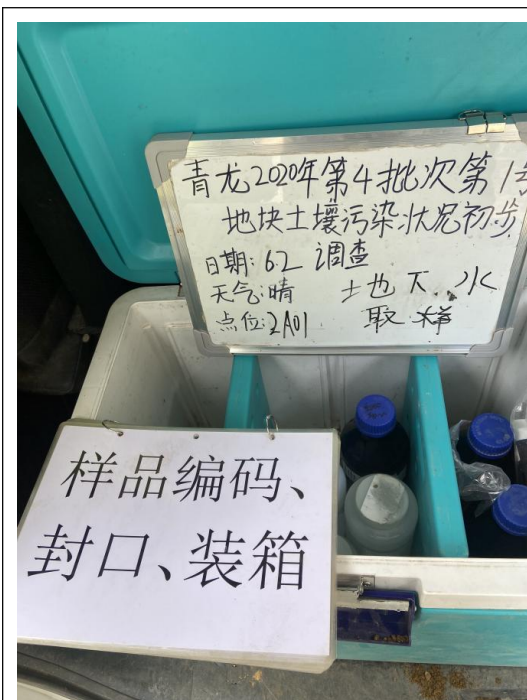 青龙2020年第4批次第1
地块土壤污染状况初步
日期:6.2 调查
天气:晴 地下水
点位:2A01 取样
样品编码、
封口、装箱